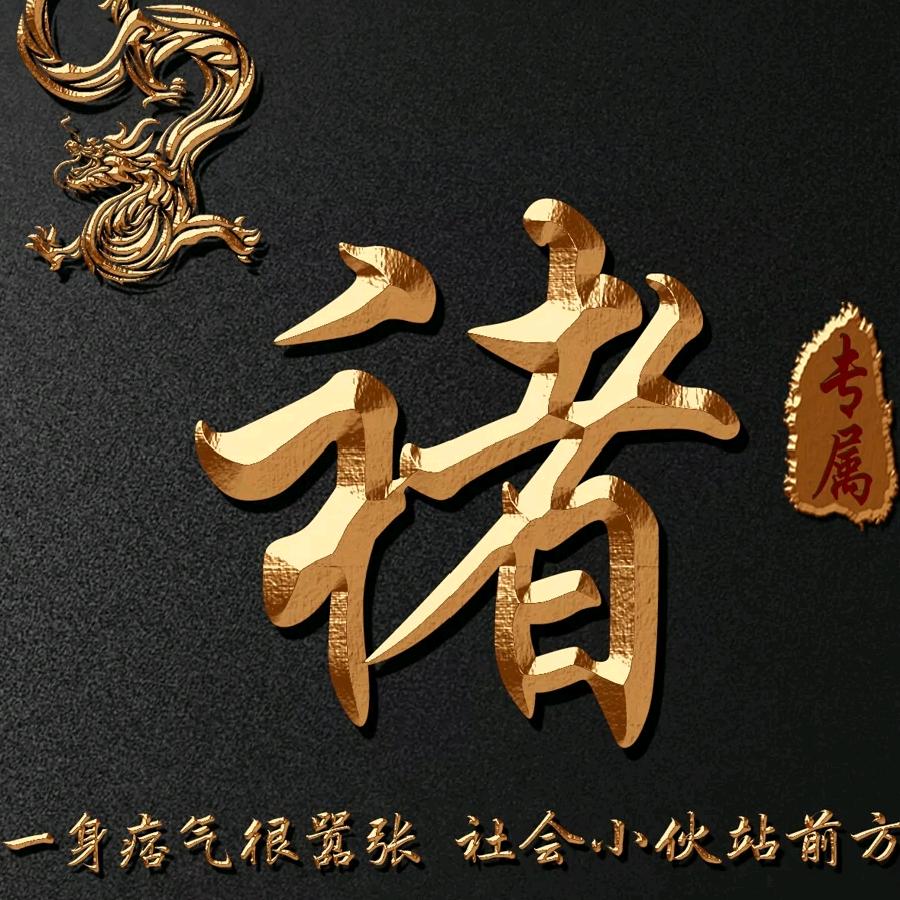 褚
专属
一身痞气很嚣张 社会小伙站前方